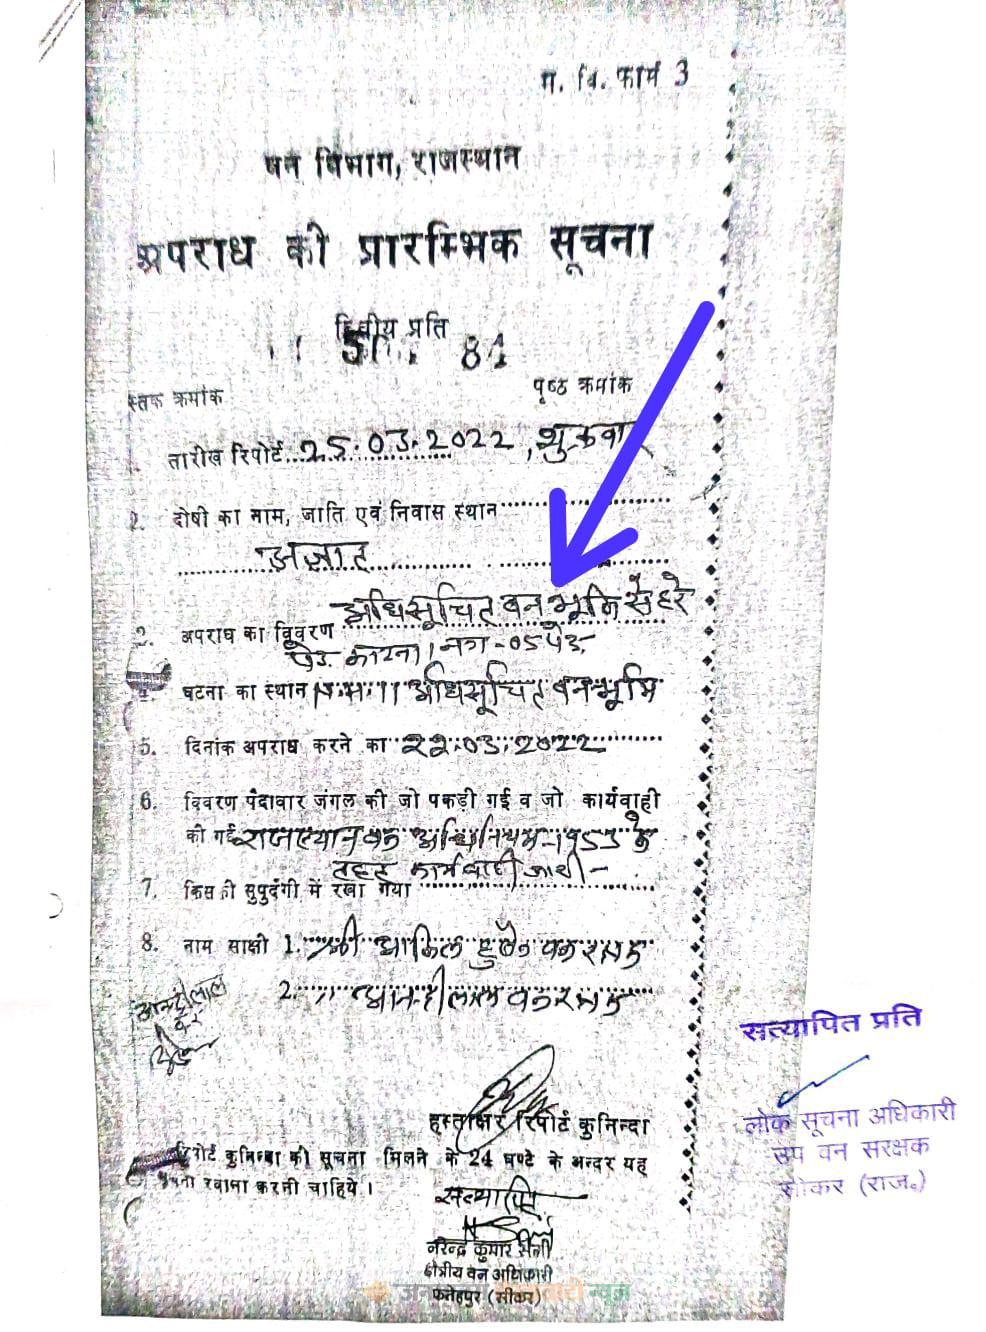 म. वि. फार्म 3
वन विभाग, राजस्थान
अपराध की प्रारम्भिक सूचना
द्वितीय प्रति
51 81
स्तक क्रमांक पृष्ठ क्रमांक
1. तारीख रिपोर्ट 25.03.2022, शुक्रवार
2. दोषी का नाम, जाति एवं निवास स्थान
अज्ञात
अधिसूचित वन भूमि से हरे
3. अपराध का विवरण
पेड़ काटना। नग-05 पेड़
घटना का स्थान अधिसूचित वनभूमि
5. दिनांक अपराध करने का 22.03.2022
6. विवरण पैदावार जंगल की जो पकड़ी गई व जो कार्यवाही
की गई राजस्थान वन अधिनियम-1953 के
तहत कार्यवाही
7. किस की सुपुर्दगी में रखा गया
8. नाम साक्षी 1. श्री आकिल हुसैन वन रक्षक
आनन्दीलाल
2. '' आनन्दीलाल वन रक्षक
सत्यापित प्रति
हस्ताक्षर रिपोर्ट कुनिन्दा
लोक सूचना अधिकारी
उप वन संरक्षक
सीकर (राज०)
रिपोर्ट कुनिन्दा की सूचना मिलने के 24 घण्टे के अन्दर यह
रवाना करनी चाहिये ।
सत्यापित
नरेन्द्र कुमार सैनी
क्षेत्रीय वन अधिकारी
फतेहपुर (सीकर)